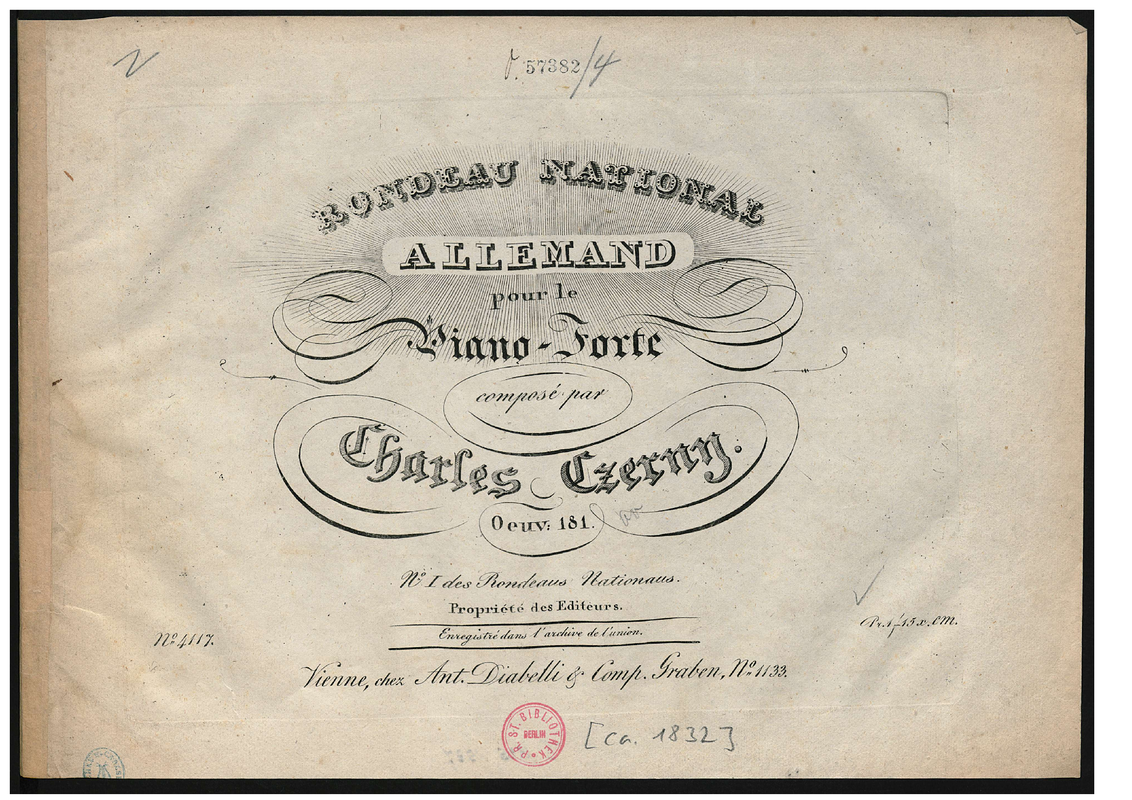 57382/4
RONDEAU NATIONAL
ALLEMAND
pour le
Piano-Forte
composé par
Charles Czerny.
Oeuv: 181.
No. I des Rondeaus Nationaus.
Propriété des Editeurs.
Enregistré dans l'archive de l'union.
No. 4117.
Pr. 1 f 15 x. CM.
Vienne, chez Ant. Diabelli & Comp. Graben, No. 1133.
PR. ST. BIBLIOTHEK BERLIN
[ca. 1832]